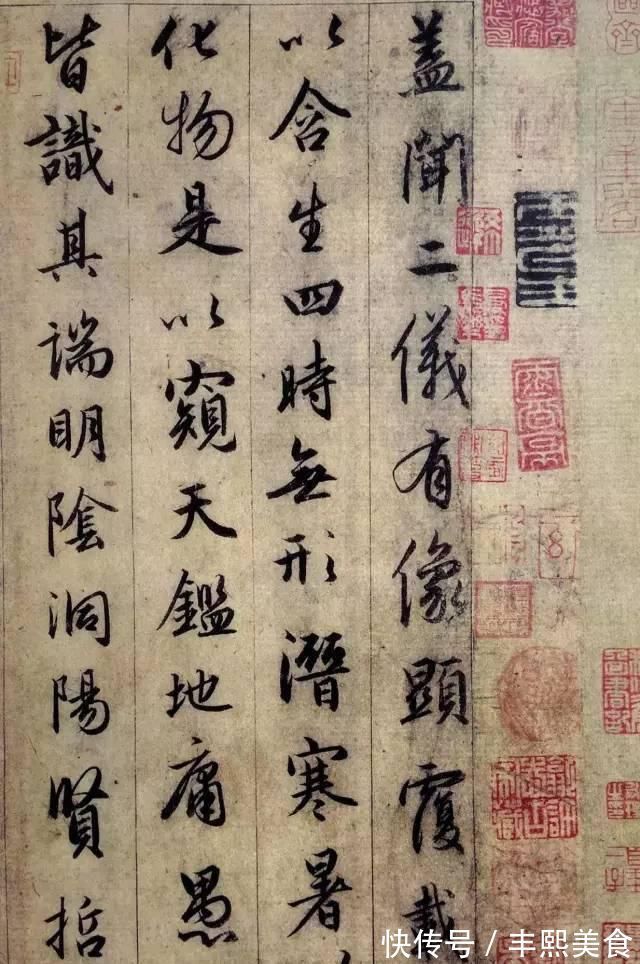 盖聞二儀有像顯覆載
以含生四時無形潛寒暑
化物是以窺天鑑地庸愚
皆識其端明陰洞陽賢哲
快传号 / 丰熙美食